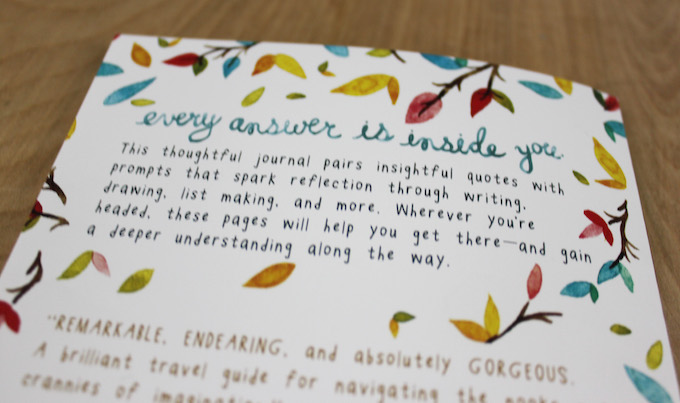 every answer is inside you.
This thoughtful journal pairs insightful quotes with
prompts that spark reflection through writing,
drawing, list making, and more. Wherever you're
headed, these pages will help you get there—and gain
a deeper understanding along the way.
"REMARKABLE, ENDEARING, and absolutely GORGEOUS.
A brilliant travel guide for navigating the nooks
crannies of